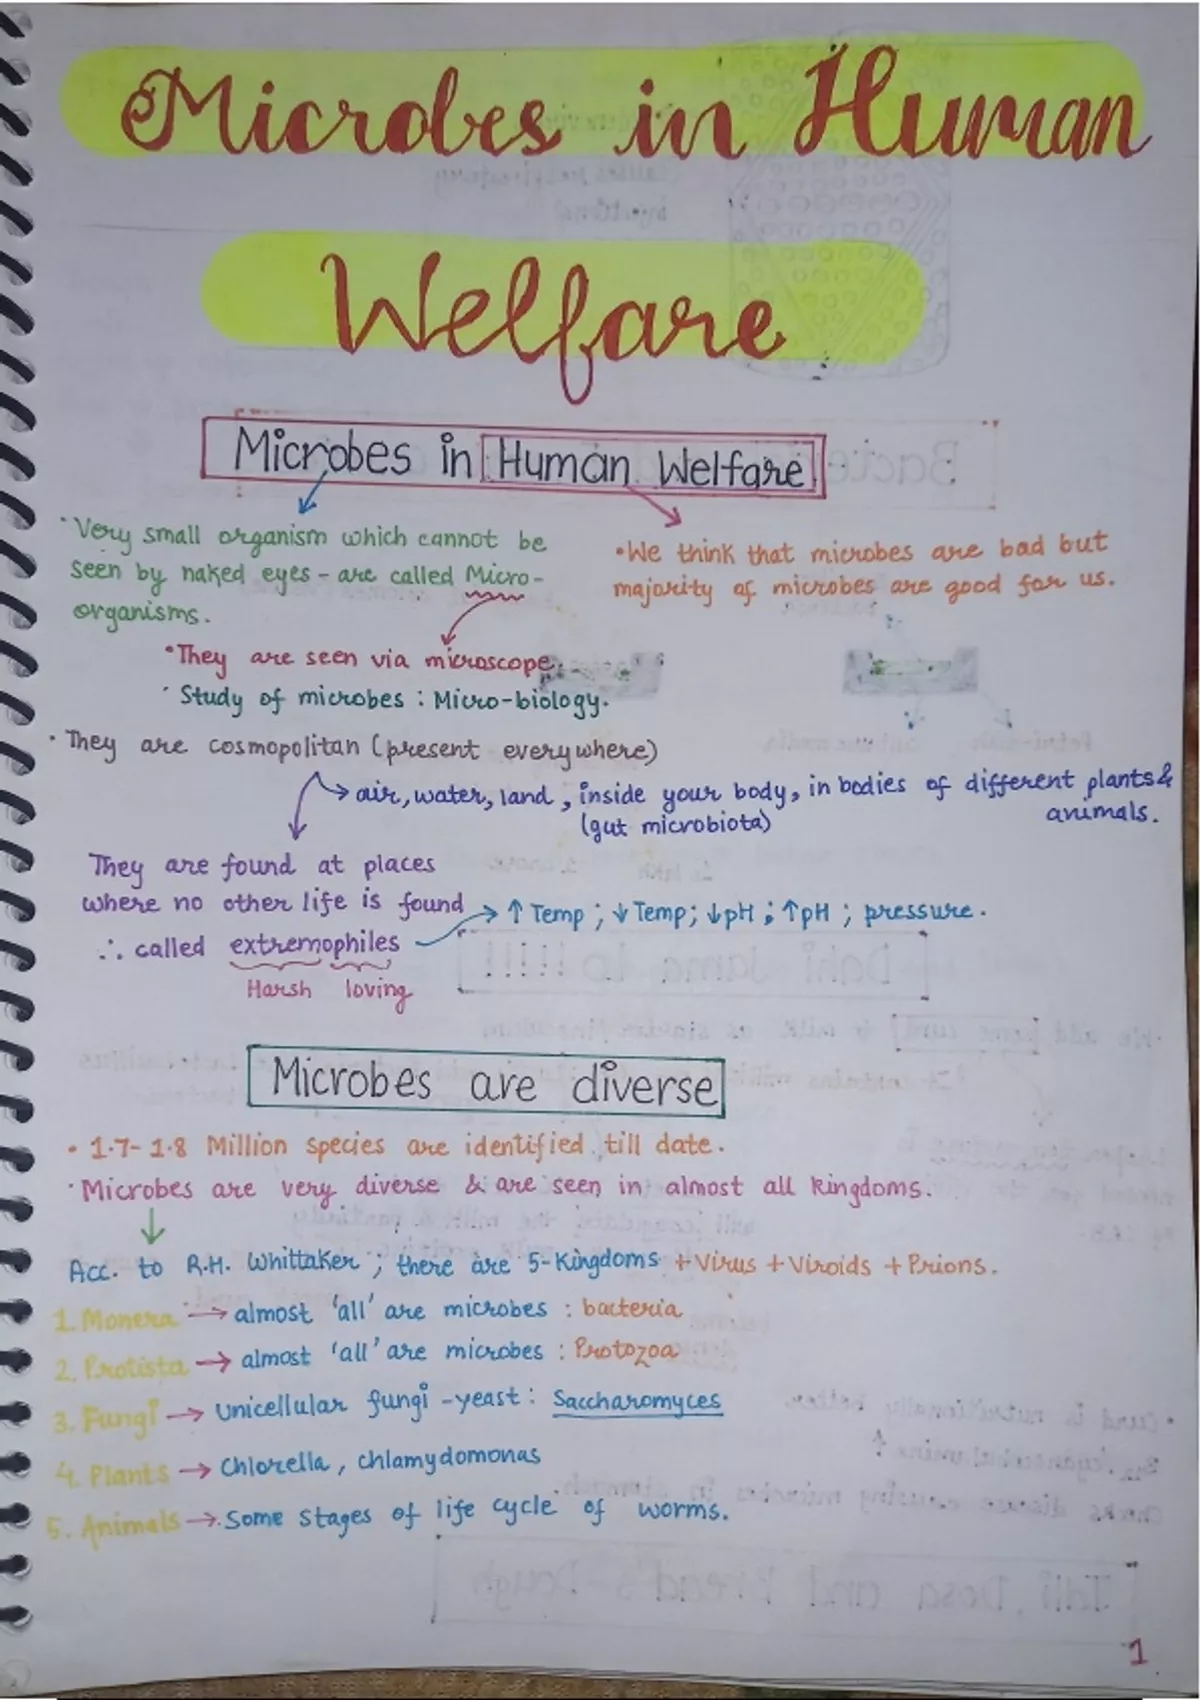 Microbes in Human
Welfare
Microbes in Human Welfare
• Very small organism which cannot be
seen by naked eyes - are called Micro-
organisms.
• We think that microbes are bad but
majority of microbes are good for us.
• They are seen via microscope.
• Study of microbes : Micro-biology.
• They are cosmopolitan (present everywhere)
→ air, water, land, inside your body, in bodies of different plants &
(gut microbiota) animals.
They are found at places
where no other life is found
→ ↑ Temp ; ↓ Temp; ↓pH ; ↑pH ; pressure.
∴ called extremophiles
Harsh loving
Microbes are diverse
• 1.7-1.8 Million species are identified till date.
• Microbes are very diverse & are seen in almost all kingdoms.
Acc. to R.H. Whittaker ; there are 5-Kingdoms + Virus + Viroids + Prions.
1. Monera → almost 'all' are microbes : bacteria
2. Protista → almost 'all' are microbes : Protozoa
3. Fungi → Unicellular fungi - yeast : Saccharomyces
4. Plants → Chlorella, chlamydomonas
5. Animals → Some stages of life cycle of worms.
1